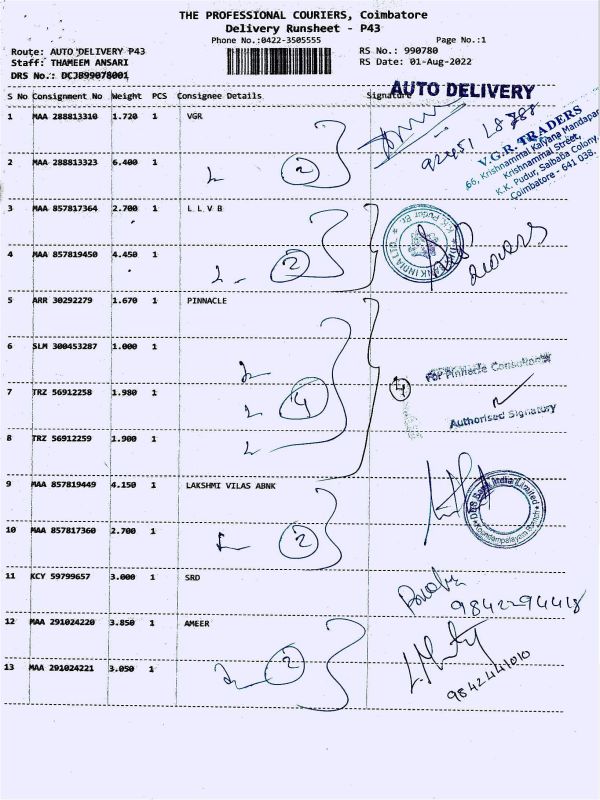 THE PROFESSIONAL COURIERS, Coimbatore
Delivery Runsheet - P43
Phone No.:0422-3505555 Page No.:1
Route: AUTO DELIVERY P43 RS No.: 990780
Staff: THAMEEM ANSARI RS Date: 01-Aug-2022
DRS No.: DCJB99078001
AUTO DELIVERY
S No Consignment No Weight PCS Consignee Details Signature
1 MAA 288813310 1.720 1 VGR
V.G.R. TRADERS
66, Krishnammal Kalyana Mandapam
Krishnammal Street,
K.K. Pudur, Saibaba Colony,
Coimbatore - 641 038.
2 MAA 288813323 6.400 1 2
3 MAA 857817364 2.700 1 L L V B
K.K. Pudur Br.
4 MAA 857819450 4.450 1 2
5 ARR 30292279 1.670 1 PINNACLE
6 SLM 300453287 1.000 1
For Pinnacle Consultants
7 TRZ 56912258 1.980 1 4 4
Authorised Signatory
8 TRZ 56912259 1.900 1
9 MAA 857819449 4.150 1 LAKSHMI VILAS ABNK
DBS Bank India Limited
Koundampalayam Branch
10 MAA 857817360 2.700 1 2
11 KCY 59799657 3.000 1 SRD
9842294418
12 MAA 291024220 3.850 1 AMEER
13 MAA 291024221 3.050 1 2
9842441010